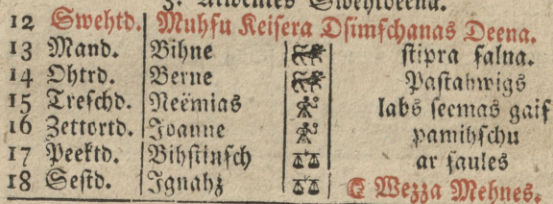 12 Swehtd. Muhsu Keisera Dsimschanas Deena.
13 Mand. Bihne stipra salna.
14 Ohtrd. Berne Pastahwigs
15 Treschd. Neëmias labs seemas gais
16 Zettortd. Joanne pamihschu
17 Peektd. Bihstinsch ar saules
18 Sestd. Ignahz Wezza Mehnes.